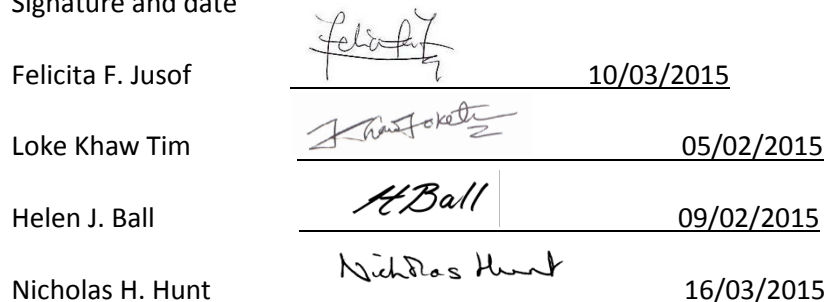 Signature and date
Felicita F. Jusof 10/03/2015
Loke Khaw Tim 05/02/2015
Helen J. Ball HBall 09/02/2015
Nicholas H. Hunt Nicholas Hunt 16/03/2015